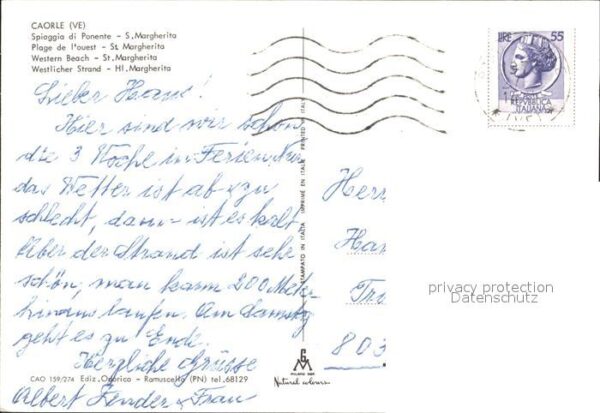 CAORLE (VE)
Spiaggia di Ponente - S. Margherita
Plage de l'ouest - St. Margherita
Western Beach - St. Margherita
Westlicher Strand - Hl. Margherita
Lieber Hans!
Hier sind wir schon
die 3 Woche in Ferien. Nur
das Wetter ist ab + zu
schlecht, dann ist es kalt
Aber der Strand ist sehr
schön, man kann 200 Meter
hinaus laufen. Am Samstag
geht es zu Ende.
Herzliche Grüsse
Albert Fender + Frau
CAO 159/274 Ediz. Odorico - Ramuscello (PN) tel. 68129
STAMPATO IN ITALIA IMPRIMÉ EN ITALIE PRINTED IN ITALY
MILANO
Natural colours
LIRE 55
REPUBBLICA
ITALIANA
Herr
Han
803
privacy protection
Datenschutz